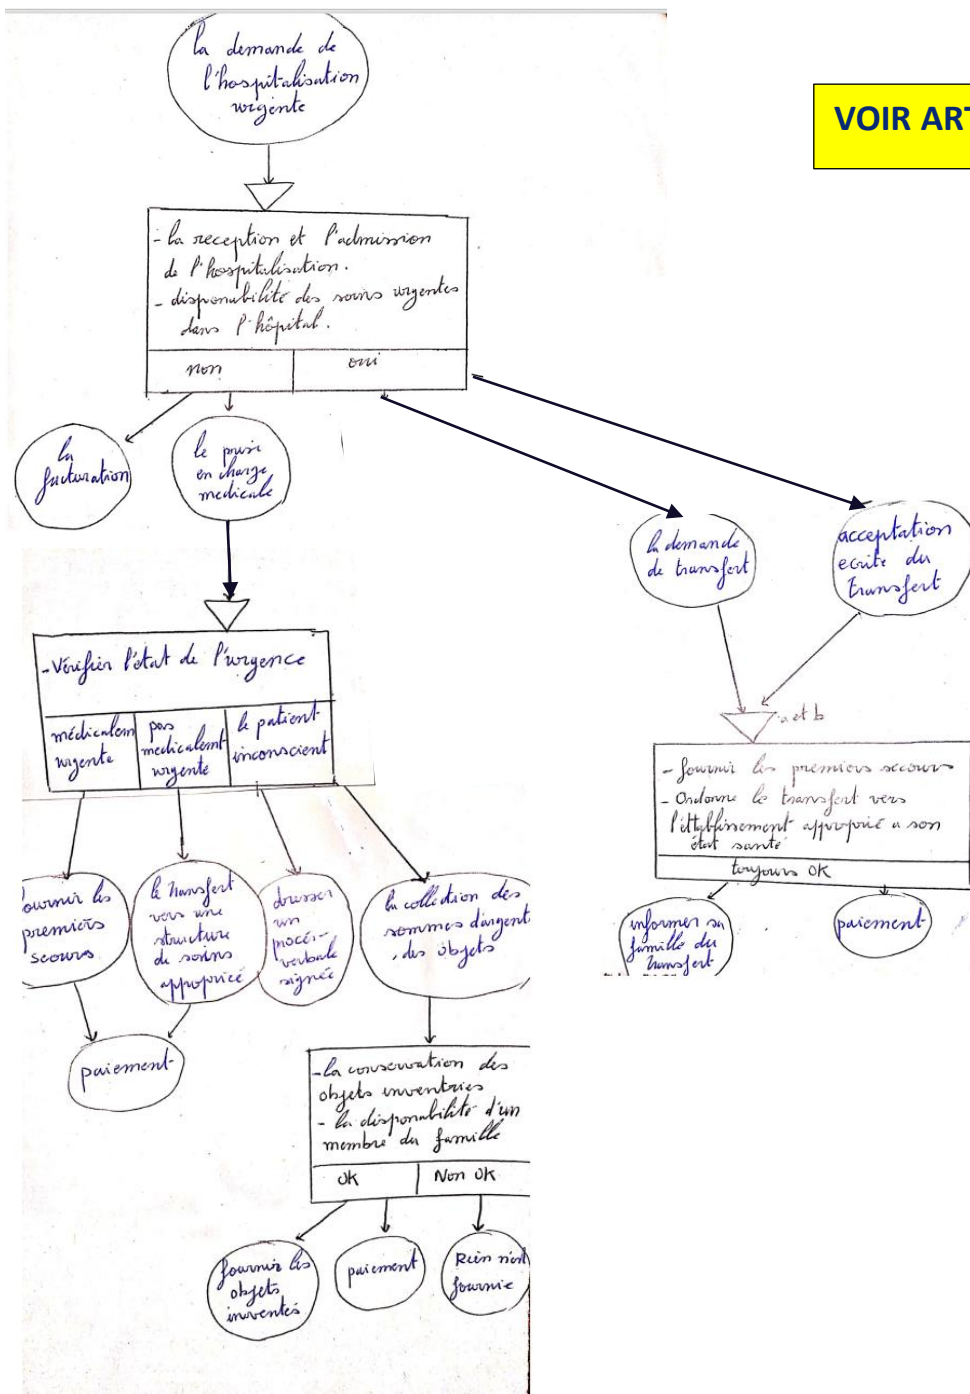 la demande de
l'hospitalisation
urgente
VOIR ART
- la reception et l'admission
de l'hospitalisation.
- disponabilité des soins urgentes
dans l'hôpital.
non
oui
la
facturation
le prise
en charge
medicale
la demande
de transfert
acceptation
ecrite du
transfert
- Vérifier l'état de l'urgence
médicalem
urgente
pas
medicalemt
urgente
le patient
inconscient
a et b
- fournir les premiers secours
- Ordonne le transfert vers
l'éttablissement approprié a son
état santé
toujours OK
fournir les
premiers
secours
le transfert
vers une
structure
de soins
appropriée
dresser
un
procér-
verbale
signée
la collection des
sommes d'argent
, des objets
informer sa
famille du
transfert
paiement
paiement
- la conservation des
objets inventries
- la disponabilité d'un
membre du famille
OK
Non OK
fournir les
objets
inventés
paiement
Rien n'est
fournie